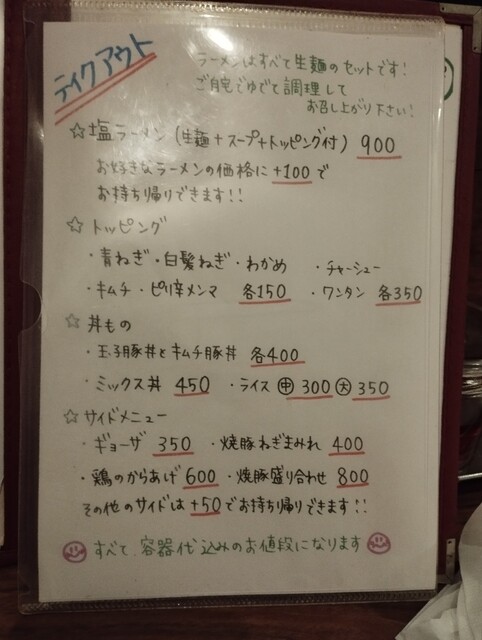 テイクアウト
ラーメンはすべて生麺のセットです!
ご自宅でゆでて調理して
お召し上がり下さい!
☆塩ラーメン(生麺+スープ+トッピング付) 900
お好きなラーメンの価格に+100で
お持ち帰りできます!!
☆トッピング
・青ねぎ・白髪ねぎ・わかめ ・チャーシュー
・キムチ・ピリ辛メンマ 各150 ・ワンタン 各350
☆丼もの
・玉子豚丼とキムチ豚丼 各400
・ミックス丼 450 ・ライス ㊥300 大350
☆サイドメニュー
・ギョーザ 350 ・焼豚ねぎまみれ 400
・鶏のからあげ 600 ・焼豚盛り合わせ 800
その他のサイドは+50でお持ち帰りできます!!
すべて、容器代込みのお値段になります